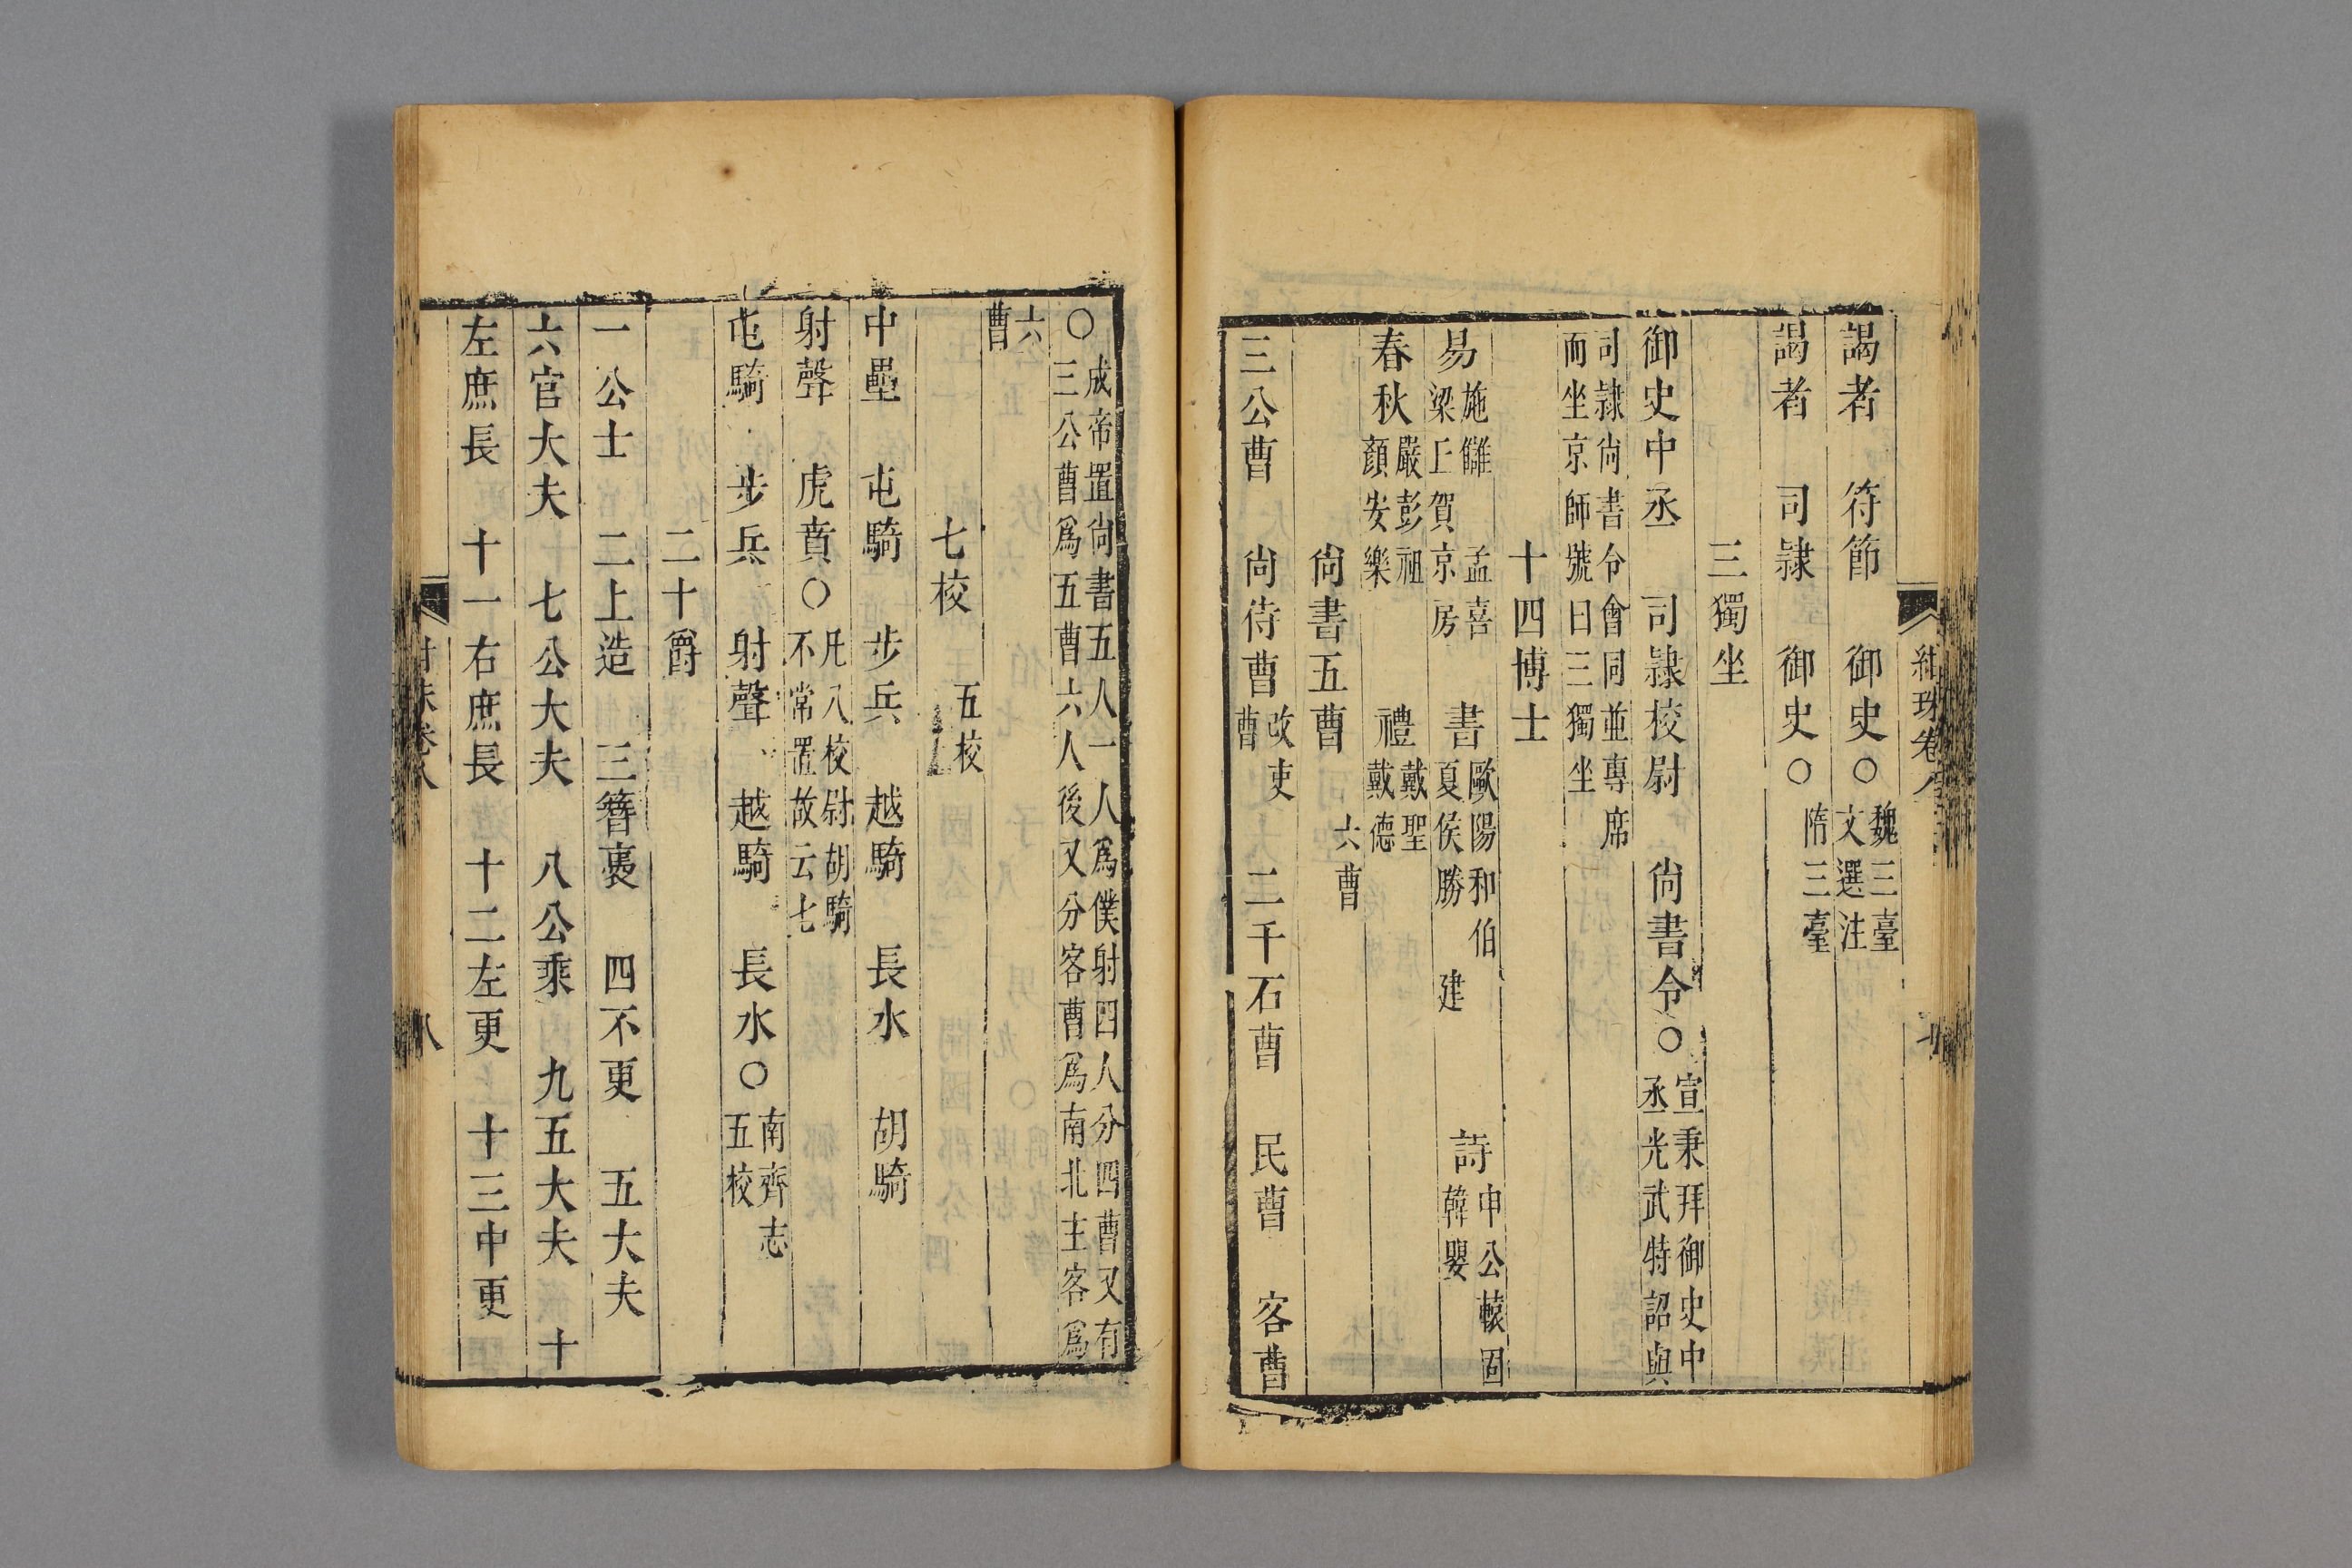 紺珠卷八
謁者　符節　御史○魏三臺文選注
謁者　司隷　御史○隋三臺
三獨坐
御史中丞　司隷校尉　尚書令○宣秉拜御史中丞光武特詔與
司隷尚書令會同並專席而坐京師號曰三獨坐
十四博士
易施讎　孟喜梁丘賀京房　書歐陽和伯夏侯勝　建　詩申公轅固韓嬰
春秋嚴彭祖顏安樂　禮戴聖戴德
尚書五曹　六曹
三公曹　尚侍曹改吏曹　二千石曹　民曹　客曹
○成帝置尚書五人一人爲僕射四人分四曹又有三公曹爲五曹六人後又分客曹爲南北主客爲
六曹
七校　五校
中壘　屯騎　步兵　越騎　長水　胡騎
射聲　虎賁○凡八校尉胡騎不常置故云七
屯騎　步兵　射聲　越騎　長水○南齊志五校
二十爵
一公士　二上造　三簪裹　四不更　五大夫
六官大夫　七公大夫　八公乘　九五大夫　十
左庶長　十一右庶長　十二左更　十三中更
卷八　八